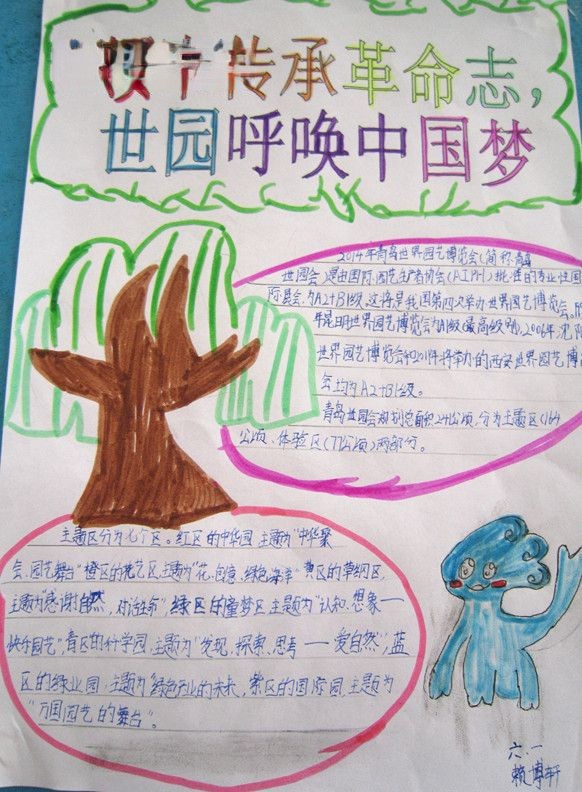 传承革命志，
世园呼唤中国梦
2014年青岛世界园艺博览会(简称青岛
世园会)是由国际园艺生产者协会(AIPH)批准的专业性国
际展会,为A2+B1级,这将是我国第四次举办世界园艺博览会。
年昆明世界园艺博览会为A1级(最高级别),2006年沈阳
世界园艺博览会和2011年将举办的西安世界园艺博
会均为A2+B1级。
青岛世园会规划总面积241公顷,分为主题区(164
公顷、体验区(77公顷)两部分。
主题区分为七个区。红区的中华园,主题为"中华聚
会,园艺舞台"橙区的花艺区,主题为"花色憶,绿色海洋"黄区的草纲区,
主题为"感谢自然,对话生命",绿区的童梦区主题为"认知、想象——
快乐园艺",青区的科学园,主题为"发现,探索、思考——爱自然",蓝
区的绿业园,主题为"绿色产业的未来,紫区的国际园,主题为
"万国园艺的舞台"。
六.一
赖博轩